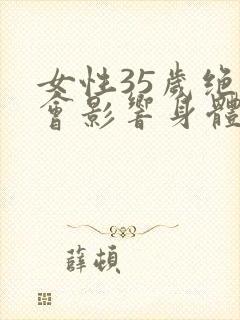 女性35歲绝
會影響身體
薛頓